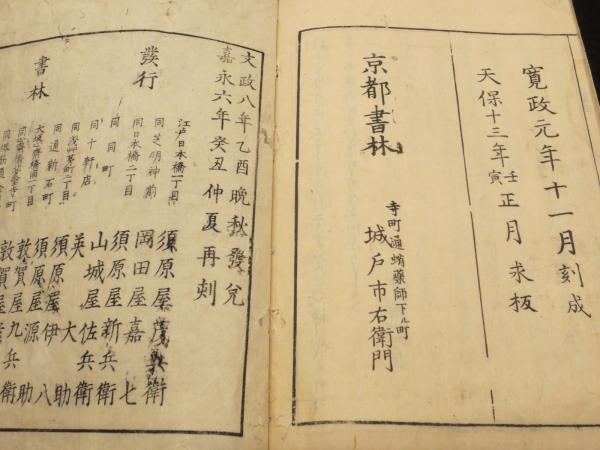 寛政元年十一月刻成
天保十三年壬寅正月求板
京都書林
寺町通蛸薬師下ル町
城戸市右衛門
文政八年乙酉晩秋發兌
嘉永六年癸丑仲夏再刻
發行
書林
江戸日本橋一丁目
須原屋茂兵衛
同芝明神前
岡田屋嘉七
同日本橋二丁目
山城屋佐兵衛
同同町
須原屋新兵衛
同十軒店
英大助
同浅草茅町二丁目
須原屋伊八
同通新石町
須原屋源助
敦賀屋九兵衛